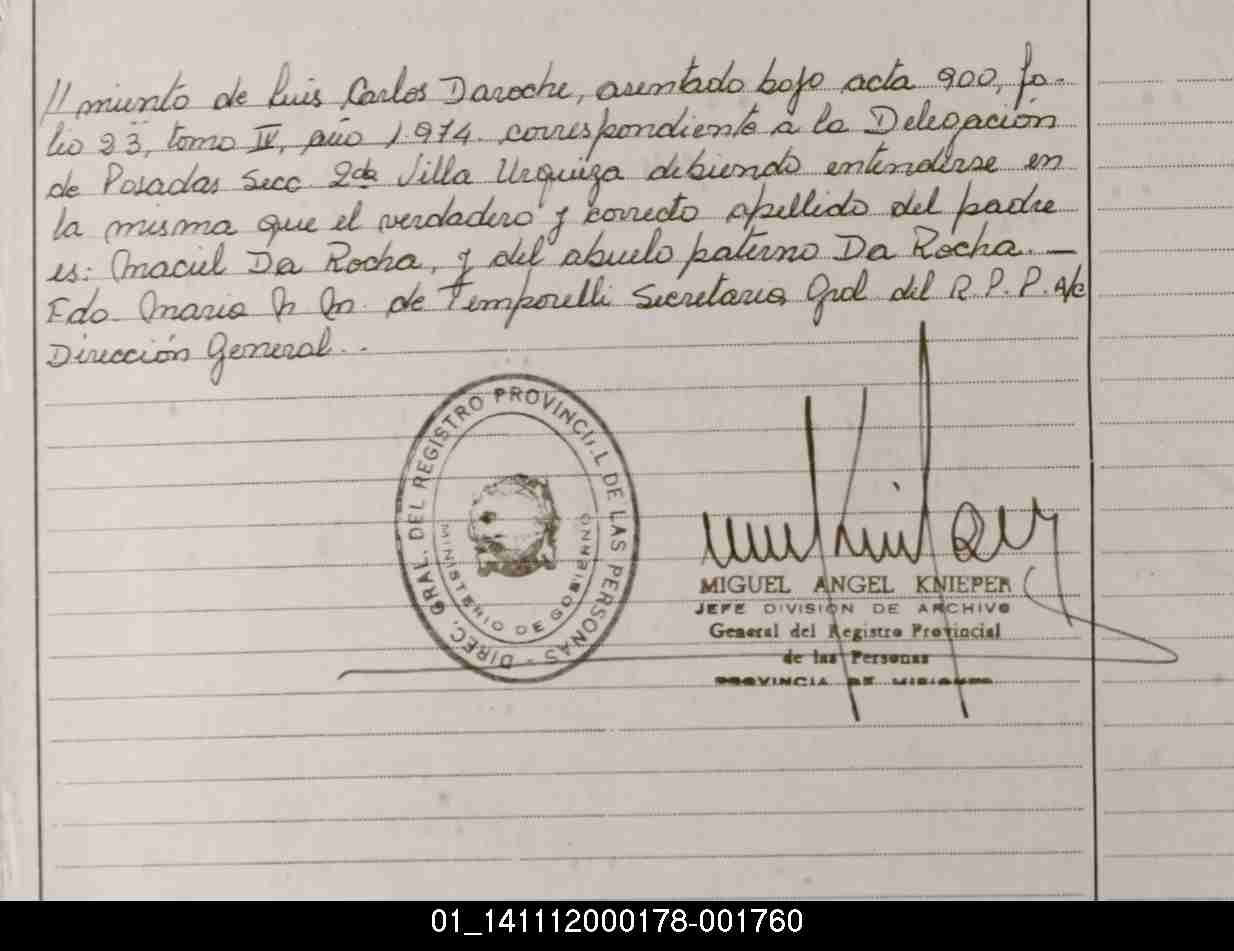 // miento de Luis Carlos Daroche, asentado bajo acta 900, fo-
lio 23, tomo IV, año 1.974. correspondiente a la Delegación
de Posadas Secc 2da Villa Urquiza debiendo entenderse en
la misma que el verdadero y correcto apellido del padre
es: Maciel Da Rocha, y del abuelo paterno Da Rocha. —
Fdo. Maria M M. de Temporelli Secretaria Gral del R. P. P. A/c
Dirección General..
DIREC. GRAL. DEL REGISTRO PROVINCIAL DE LAS PERSONAS -
MINISTERIO DE GOBIERNO
MIGUEL ANGEL KNIEPER
JEFE DIVISION DE ARCHIVO
General del Registro Provincial
de las Personas
PROVINCIA DE MISIONES
01_141112000178-001760